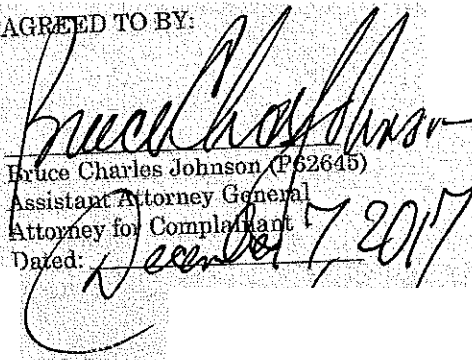 AGREED TO BY:
Bruce Chas Johnson
Bruce Charles Johnson (P62645)
Assistant Attorney General
Attorney for Complainant
Dated: December 7, 2017